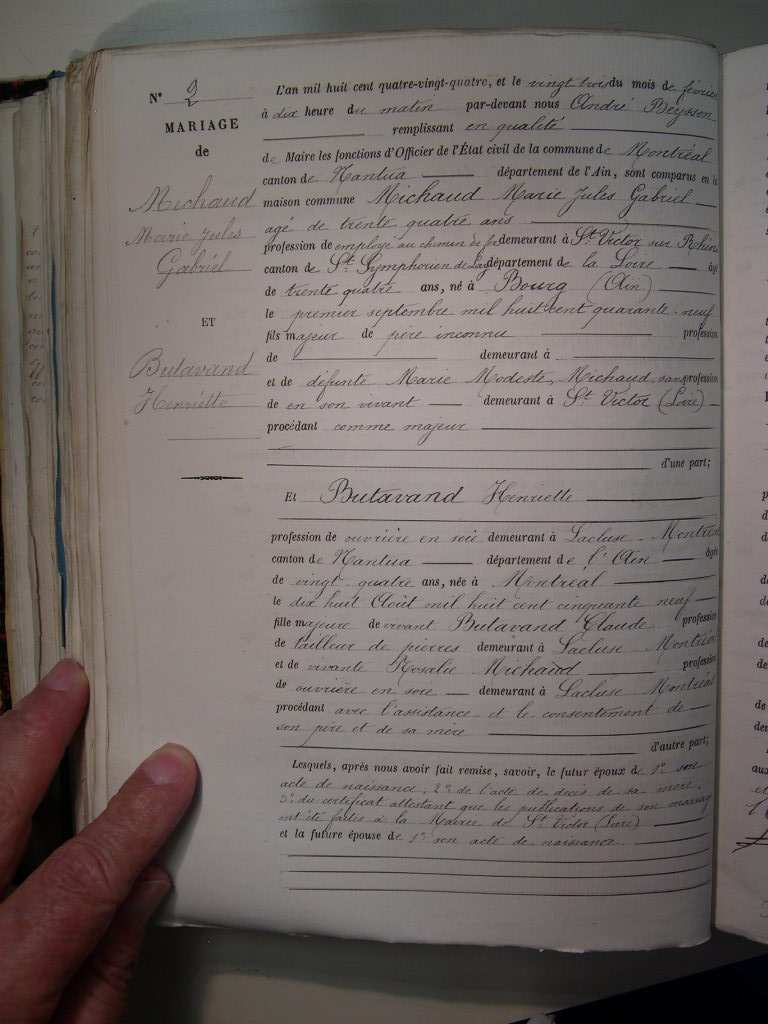 N° 2
MARIAGE
de
Michaud
Marie Jules
Gabriel
ET
Butavand
Henriette
L'an mil huit cent quatre-vingt-quatre, et le vingt trois du mois de février
à dix heure du matin par-devant nous André Beysson
remplissant en qualité
de Maire les fonctions d'Officier de l'État civil de la commune de Montréal
canton de Nantua département de l'Ain, sont comparus en la
maison commune Michaud Marie Jules Gabriel
agé de trente quatre ans
profession de employé au chemin de fer demeurant à St Victor sur Rhins
canton de St Symphorien de Lay département de la Loire âgé
de trente quatre ans, né à Bourg (Ain)
le premier septembre mil huit cent quarante-neuf
fils majeur de père inconnu profession
de demeurant à
et de défunte Marie Modeste Michaud, sans profession
de en son vivant demeurant à St Victor (Loire)
procédant comme majeur
d'une part;
Et Butavand Henriette
profession de ouvrière en soie demeurant à Lacluse-Montréal
canton de Nantua département de l'Ain âgée
de vingt-quatre ans, née à Montréal
le dix huit Août mil huit cent cinquante neuf
fille majeure de vivant Butavand Claude profession
de tailleur de pierres demeurant à Lacluse-Montréal
et de vivante Rosalie Michaud profession
de ouvrière en soie demeurant à Lacluse Montréal
procédant avec l'assistance et le consentement de
son père et de sa mère
d'autre part;
Lesquels, après nous avoir fait remise, savoir, le futur époux de 1° son
acte de naissance, 2° de l'acte de décès de sa mère,
3° du certificat attestant que les publications de son mariage
ont été faites à la Mairie de St Victor (Loire)
et la future épouse de 1° son acte de naissance